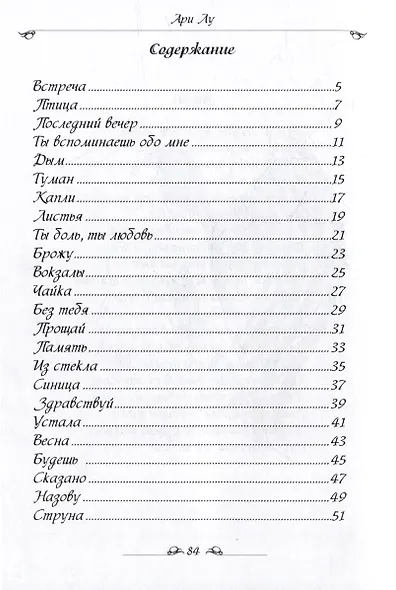 Ари Лу
Содержание
Встреча 5
Птица 7
Последний вечер 9
Ты вспоминаешь обо мне 11
Дым 13
Туман 15
Капли 17
Листья 19
Ты боль, ты любовь 21
Брожу 23
Вокзалы 25
Чайка 27
Без тебя 29
Прощай 31
Память 33
Из стекла 35
Синица 37
Здравствуй 39
Устала 41
Весна 43
Будешь 45
Сказано 47
Назову 49
Струна 51
84